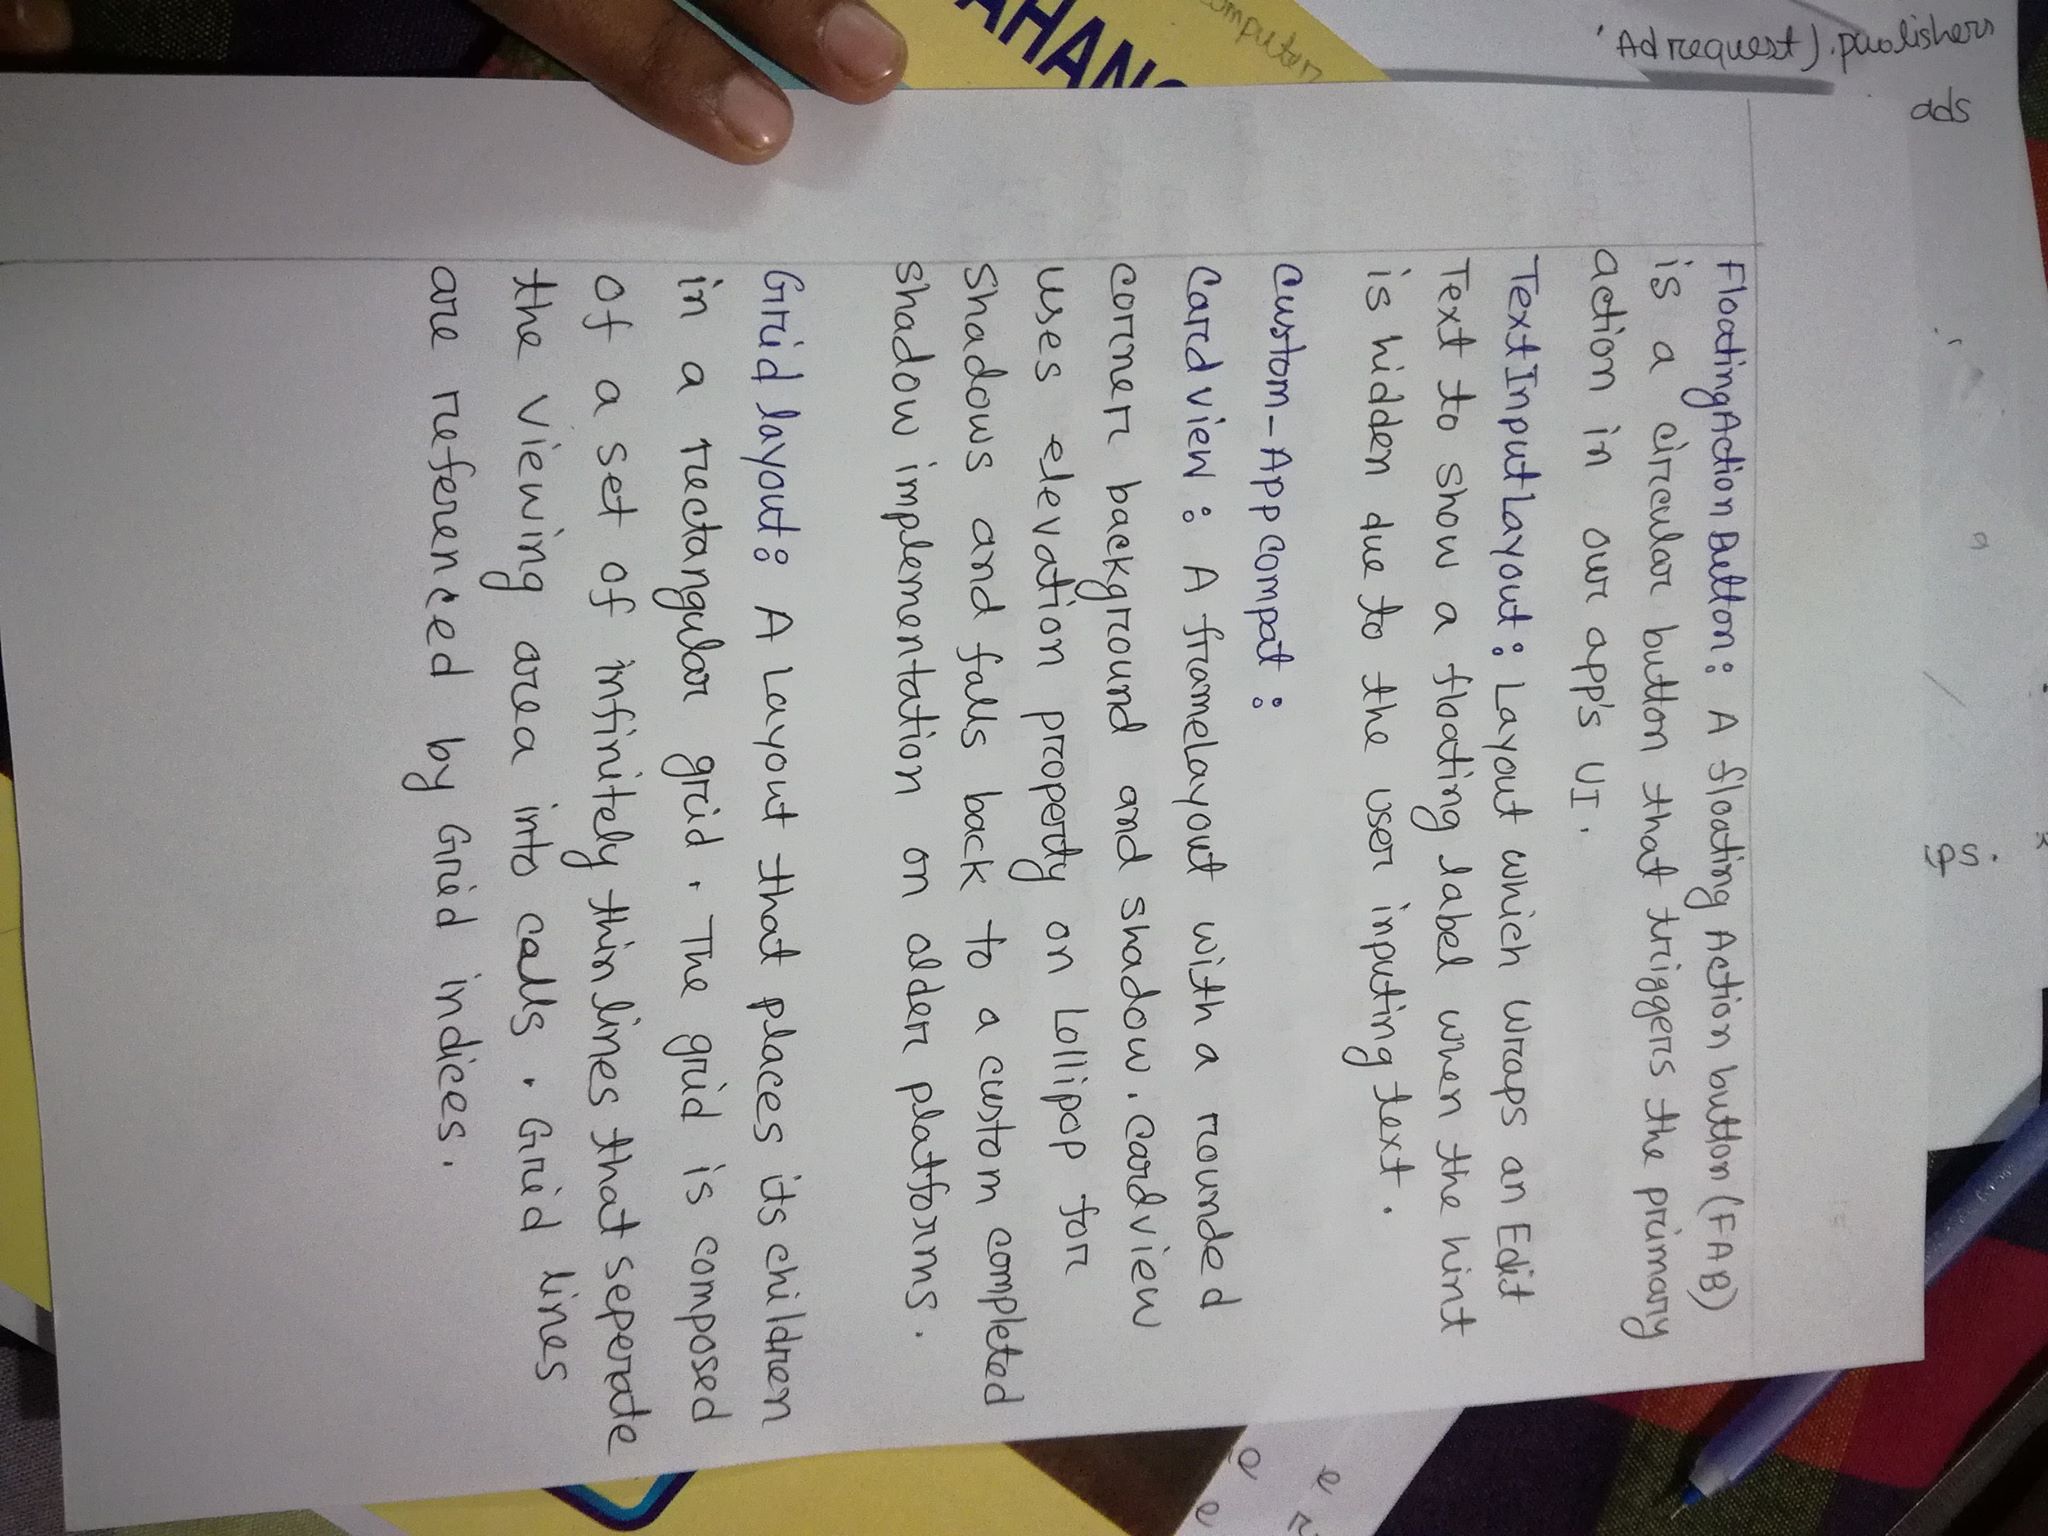 FloatingActionButton: A floating Action button (FAB)
is a circular button that triggers the primary
action in our app's UI.
TextInputLayout: Layout which wraps an Edit
Text to show a floating label when the hint
is hidden due to the user inputing text.
Custom-Appcompat:
Cardview: A frameLayout with a rounded
corner background and shadow. Cardview
uses elevation property on Lollipop for
shadows and falls back to a custom completed
shadow implementation on older platforms.
Grid layout: A Layout that places its children
in a rectangular grid. The grid is composed
of a set of infinitely thin lines that seperate
the viewing area into cells. Grid lines
are referenced by Grid indices.
Adrequest).publishers
ads
computer